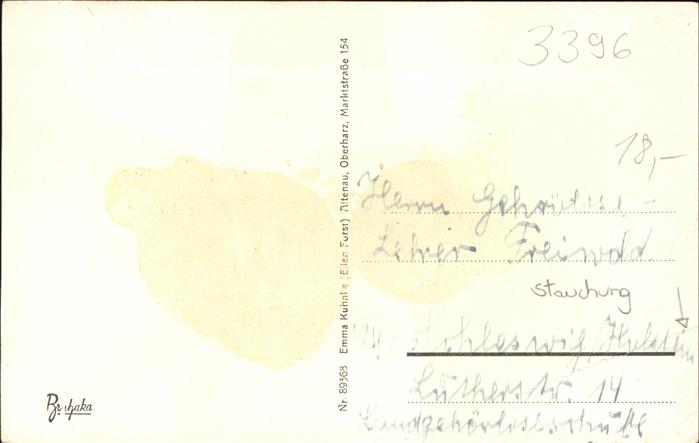 3396
18,-
Nr. 89368 Emma Kuhnke (Ellen Forst) Altenau, Oberharz, Marktstraße 154
Herrn Gehörlose-
Lehrer Freiwald
Stauchung
Schleswig/Holstein
Lutherstr. 14
Landgehörloseschule